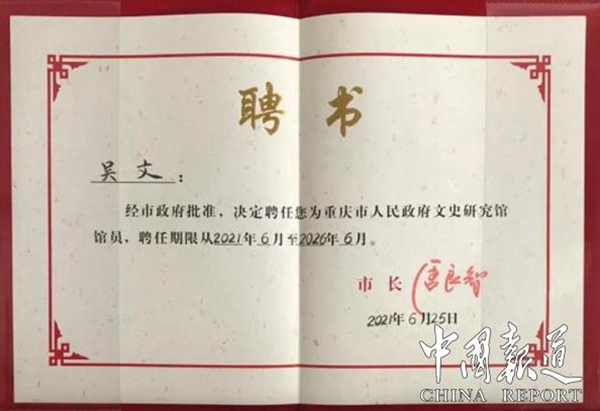 聘书
吴文：
经市政府批准，决定聘任您为重庆市人民政府文史研究馆
馆员，聘任期限从2021年6月至2026年6月。
市长 唐良智
2021年6月25日
中国报道
CHINA REPORT